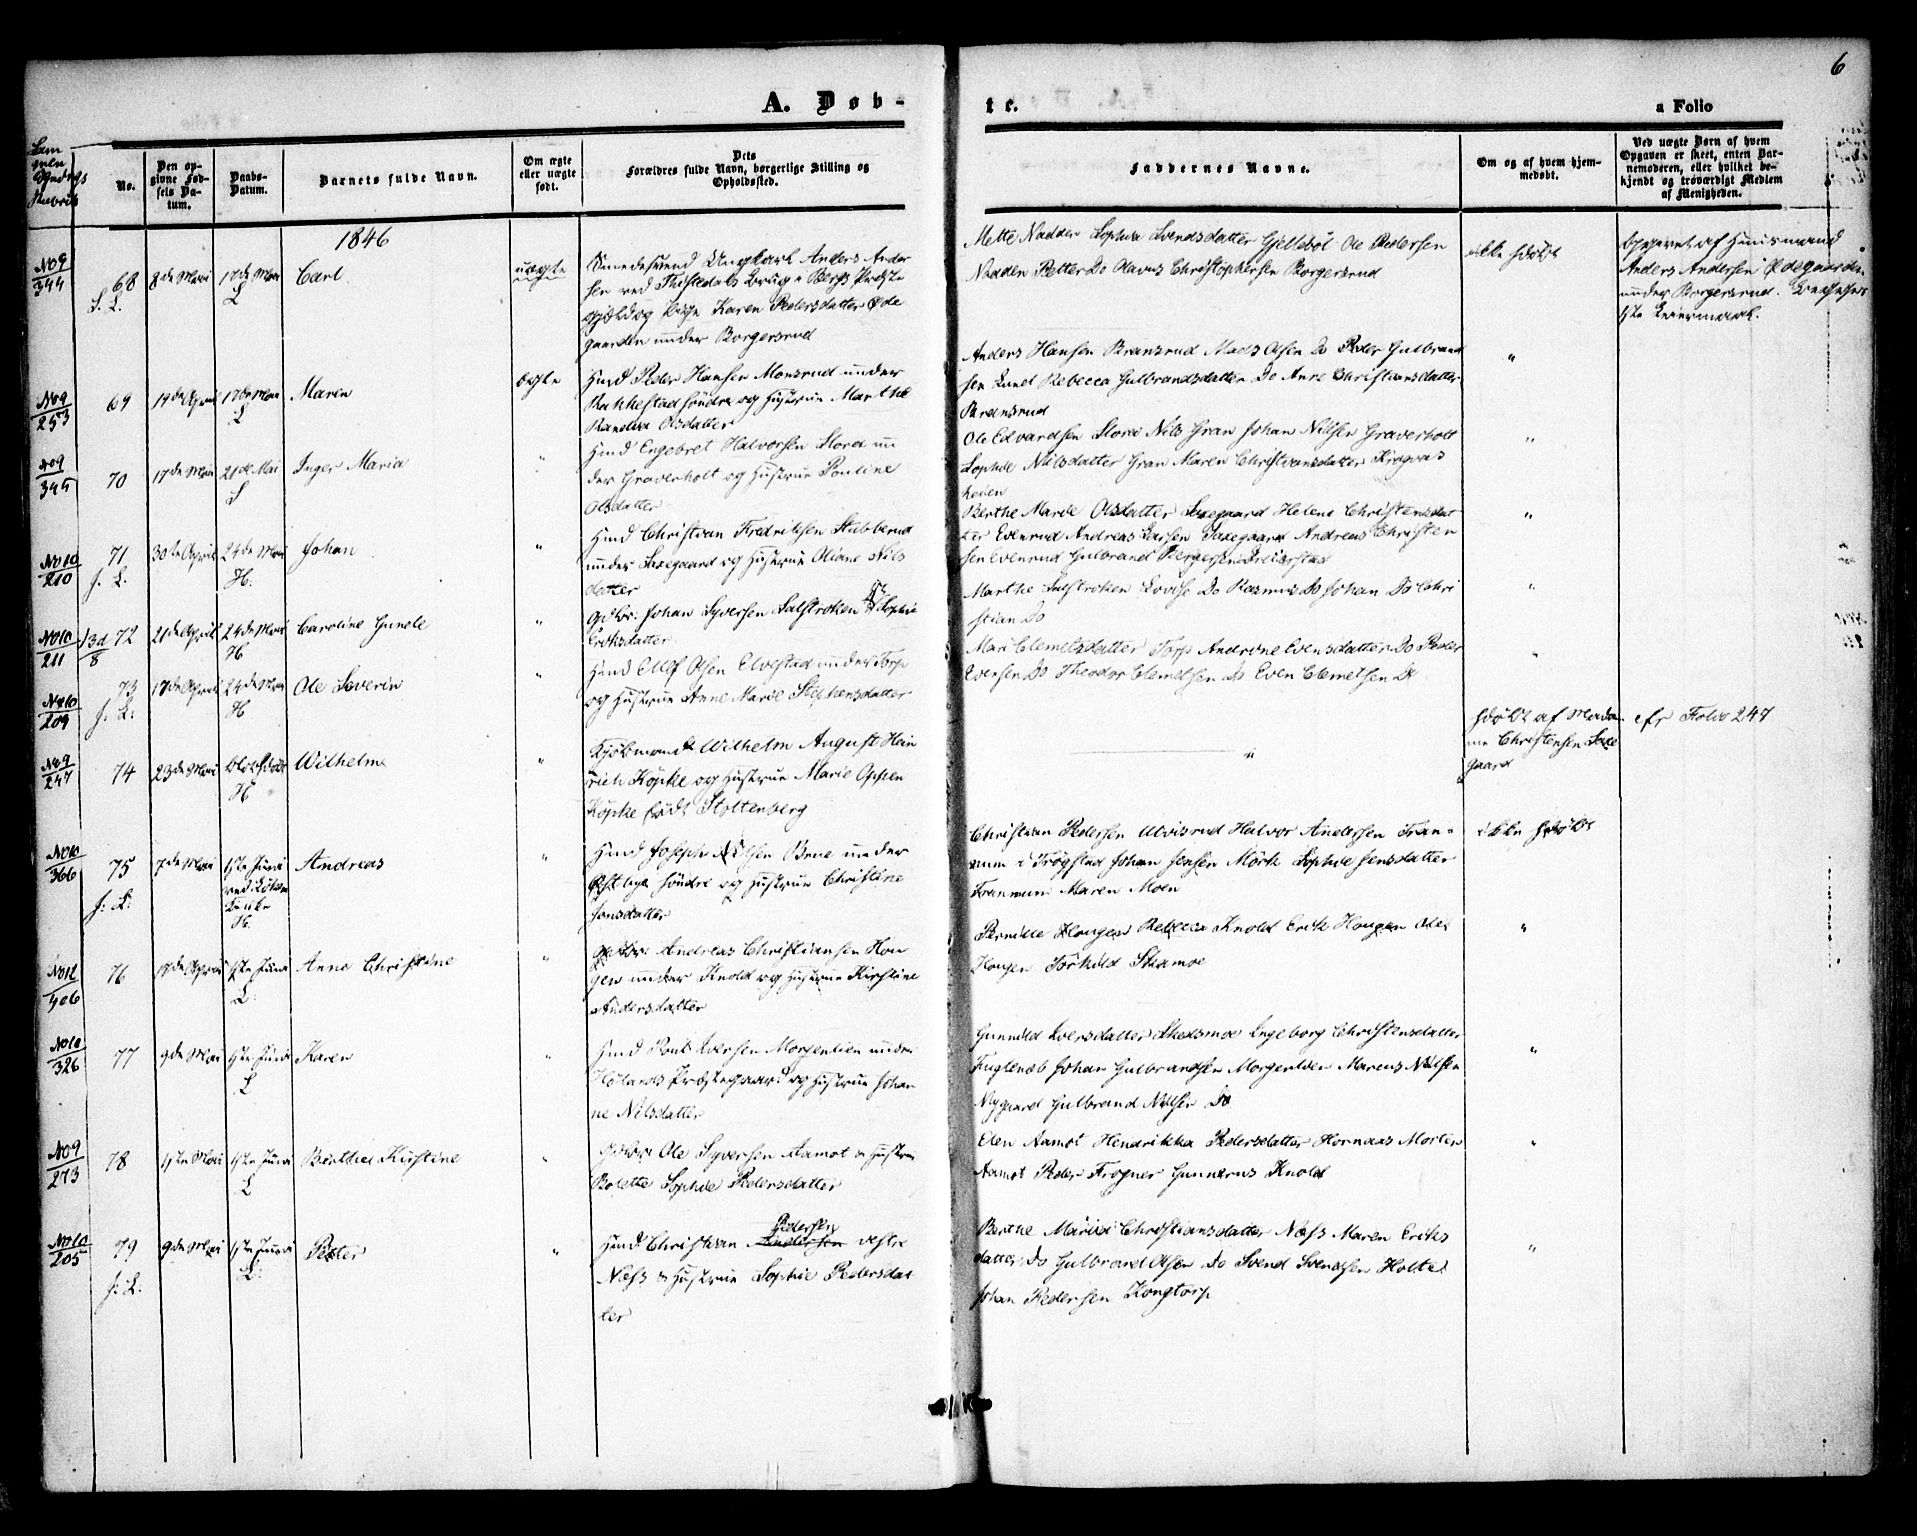 6
A. Døb-
te.
a Folio
No.
Den op-
givne Fød-
sels Da-
tum.
Daabs-
Datum.
Barnets fulde Navn.
Om ægte
eller uægte
født.
Dets
Forældres fulde Navn, borgerlige Stilling og
Opholdssted.
Faddernes Navne.
Om og af hvem hjem-
medøbt.
Ved uægte Børn af hvem
Opgaven er skeet, enten Bar-
nemoderen, eller hvilket be-
kjendt og troværdigt Medlem
af Menigheden.
1846
No 9
344
68
8de Mai
17de Mai
L
Carl
uægte
Smedesvend Ungkarl Anders Ander
sen ved Tistedals Brug i Bergs Præste
gjeld og Pige Karen Pedersdatter Øde
gaarden under Borgersrud
Mette Nadden Sophie Svendsdatter Gjellebøl Ole Pedersen
Nadden Petter Do Olavus Christophersen Borgersrud
ikke hjdøbt
Opgivet af Huusmand
Anders Andersen Ødegaarden
under Borgersrud.
1ste Leiermaal.
No 9
253
69
19de April
17de Mai
L
Maren
ægte
Huusmd Peder Hansen Monsrud under
Rakkestad søndre og Hustrue Marthe
Olsdatter
Anders Hansen Bransrud Mads Olsen Do Peder Gulbrand
sen Lund Rebecca Gulbrandsdatter Do Anne Christiansdatter
Bransrud
"
No 9
345
70
17de Mai
21de Mai
Inger Maria
"
Huusmd Engebret Halvorsen Slora un
der Graverholt og Hustrue Pouline
Olsdatter
Ole Edvardsen Slora Nils Gran Johan Nilsen Graverholt
Sophie Nilsdatter Gran Maren Christiansdatter
"
No 10
210
71
30te April
24de Mai
H.
Johan
"
Huusmd Christian Fredriksen Stubberud
under Saxegaard og Hustrue Oliane Nils
datter
Berthe Marie Olsdatter Saxegaard Helene Christensdat
ter Evenrud Andreas Larsen Saxegaard Andreas Christen
sen Evenrud Gulbrand Bergersen
"
No 10
211
72
21de April
24de Mai
H
Caroline Gunelie
"
Gdbr. Johan Syversen Salstroken Sophie
Eriksdatter
Marthe Salstroken Lovise Do Rasmus Do Johan Do Chri
stian Do
"
No 10
209
73
17de April
24de Mai
H
Ole Severin
"
Huusmd Ellef Olsen Elvestad under Torp
og Hustrue Anne Marie Stephensdatter
Mari Clemetsdatter Torp Andrine Evensdatter Do Peder
Evensen Do Theodor Clemetsen Do Even Clemetsen Do
"
No 9
247
74
23de Mai
H
Wilhelm
"
Kjøbmand Wilhelm August Hein
rich Köpke og Hustrue Marie Oppen
Köpke født Stoltenberg
"
hjdøbt af Mada
me Christensen Saxe
gaard
cfr Folio 247
No 10
366
75
7de Mai
1ste Juni
H.
Andreas
"
Huusmd Joseph Nilsen Brue under
søndre og Hustrue Christine
Jensdatter
Christian Pedersen Ulvisrud Halvor Andersen Fran-
num i Trøgstad Johan Jensen Mörk Sophie Jensdatter
Frannum Maren Moen
ikke hjdøbt
No 12
406
76
17de April
1ste Juni
L
Anne Christine
"
Gdbr. Andreas Christiansen Hou
gen under Knold og Hustrue Kirstine
Andersdatter
Pernille Hougen Rebecca Knold Erik Hougen Ole
Hougen Törkild Skamoe
"
No 10
326
77
9de Mai
1ste Juni
L
Karen
"
Huusmd Poul Iversen Morgenlien under
Hølands Præstegaard og Hustrue Johan
ne Nilsdatter
Gunnild Iversdatter Skedsmoe Ingeborg Christensdatter
Fuglenæb Johan Gulbrandsen Morgenlien Marcus Nilsen
Nygaard Gulbrand Nilsen Do
"
No 9
273
78
1ste Mai
1ste Juni
L
Berthe Kirstine
"
Gdbr. Ole Syversen Aamot & Hustrue
Bolette Sophie Pedersdatter
Elen Aamot Hendrikka Pedersdatter Hornaas Morten
Aamot Peder Frogner Gunnerus Knold
"
No 10
205
79
9de Mai
1ste Juni
L
Petter
"
Pedersen
Huusmd Christian Andersen vestre
Næss & Hustrue Sophie Pedersdat
ter
Berthe Maria Christiansdatter Næss Maren Eriks
datter Do Gulbrand Olsen Do Svend Svendsen Holte
Johan Pedersen Kongtorp
"